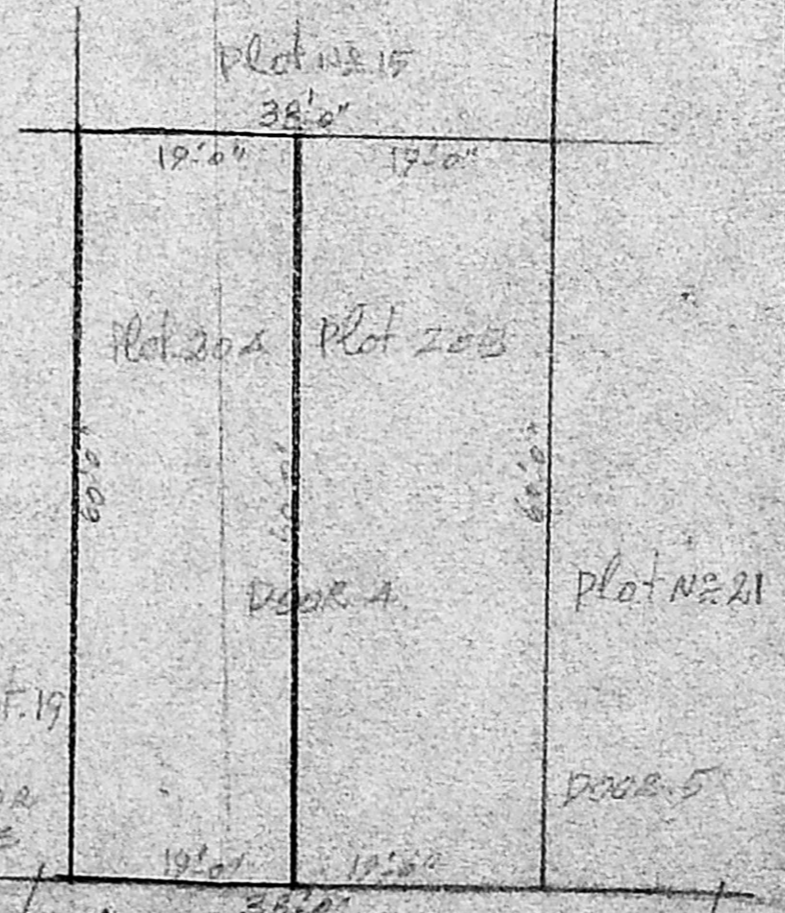 Plot No 15
38'-0"
19'-0" 19'-0"
Plot 20A Plot 20B
60'-0" 60'-0" 60'-0"
DOOR 4.
Plot No 21
t.19
DOOR.5
19'-0" 19'-0"
38'-0"